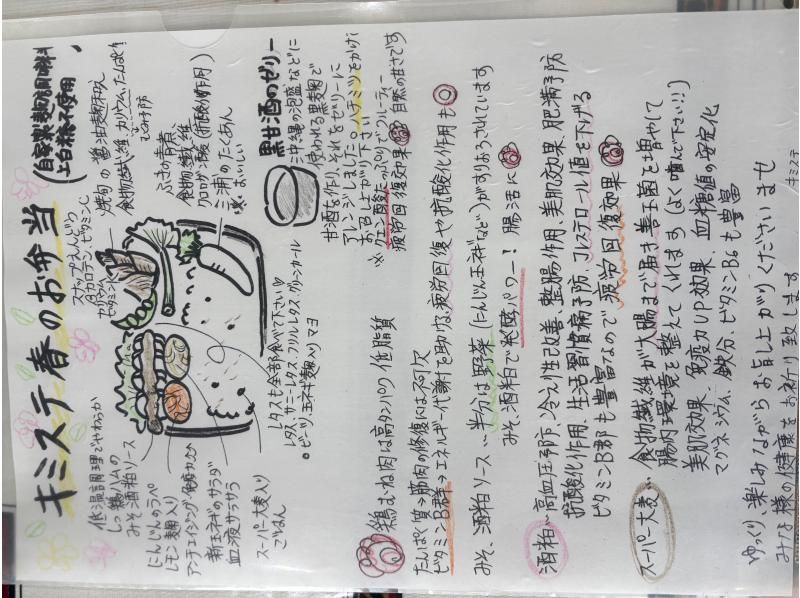 キミステ春のお弁当
(自家製麹調味料
上白糖不使用)
低温調理でやわらか
しっ鶏ハムの
みそ酒粕ソース
にんじんのラペ
レモン麹入り
アンチエイジング 免疫力UP
新玉ネギのサラダ
血液サラサラ
スーパー大麦入り
ごはん
スナップえんどう
βカロテン、ビタミンC
焼旬の醤油麹和え
食物繊維、カリウム、たんぱく質
むくみ防
ふきの青煮
食物繊維
クロロゲン酸(抗酸化作用)
三浦のたくあん
※おいしい
レタスも全部食べて下さい♡
レタス、サニーレタス、フリルレタス、グリーンカール
ビーツ、玉ネギ麹入りマヨ
黒甘酒のゼリー
沖縄の泡盛などに
使われる黒麹で
甘酒を作り、それをゼリーに
アレンジしました ハチミツをかけ
お召し上がり下さい
※クエン酸たっぷりでフルーティー
疲労回復効果 自然の甘さです
鶏むね肉は高タンパク低脂質
たんぱく質→筋肉の修復には不可欠
ビタミンB群→エネルギー代謝を助ける、疲労回復や抗酸化作用も◎
みそ、酒粕ソース…半分は野菜(にんじん玉ネギなど)がすりおろされています
みそ酒粕で発酵パワー! 腸活に
酒粕…高血圧予防、冷え性改善、整腸作用、美肌効果、肥満予防
抗酸化作用、生活習慣病予防、コレステロール値を下げる
ビタミンB群も豊富なので疲労回復効果
スーパー大麦…食物繊維が大腸まで届き善玉菌を増やして
腸内環境を整えてくれます(よく噛んで下さい!!!)
美肌効果、免疫力UP効果、血糖値の安定化
マグネシウム、鉄分、ビタミンB6も豊富
ゆっくり、楽しみながらお召し上がりくださいませ
みな様の健康をお祈り致します
キミステ